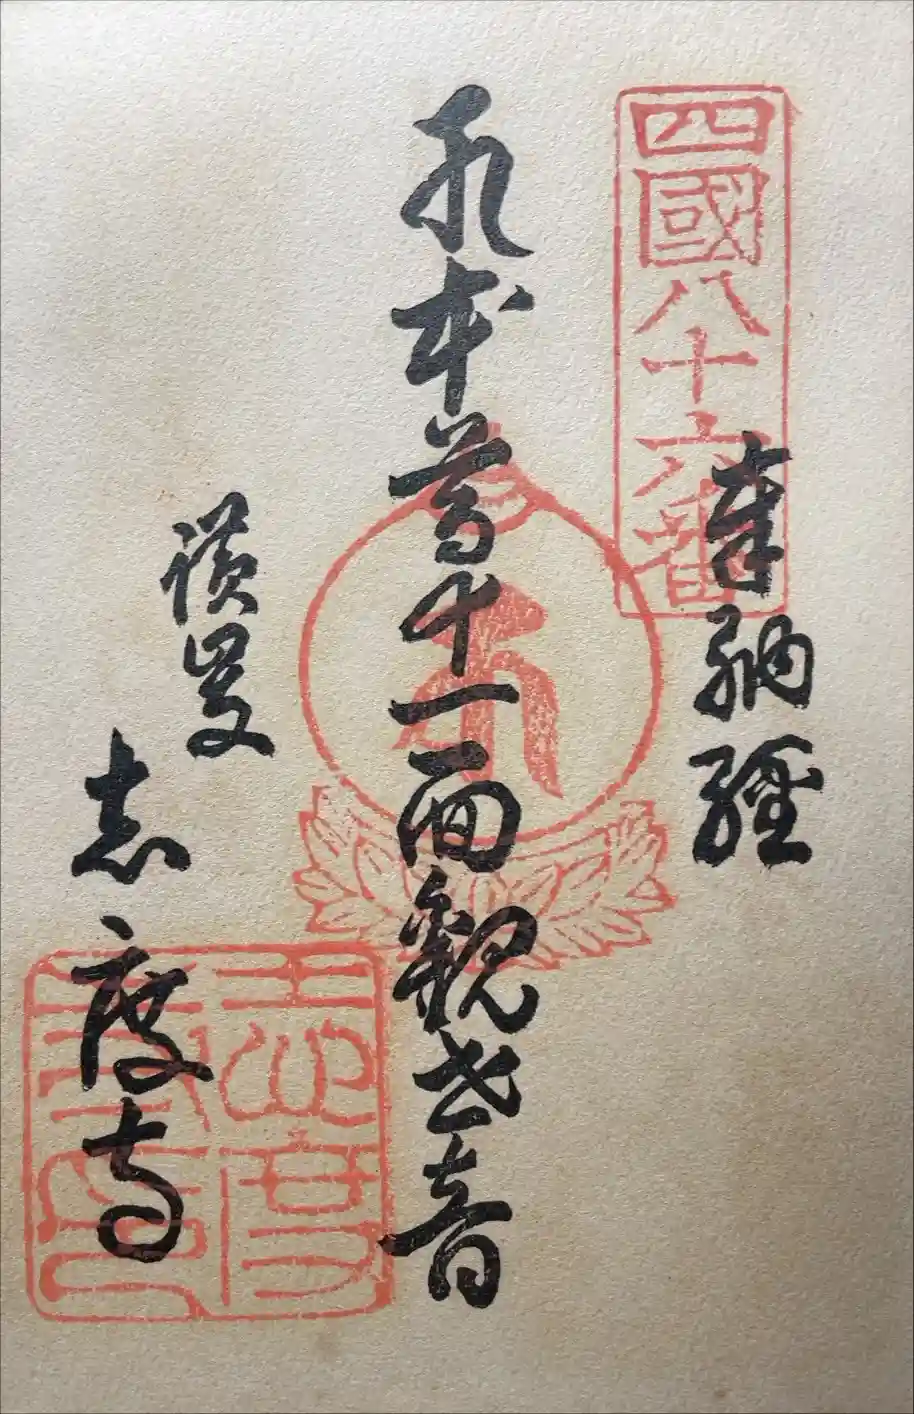 四國八十六番
奉納経
本尊十一面観世音
讃州
志度寺